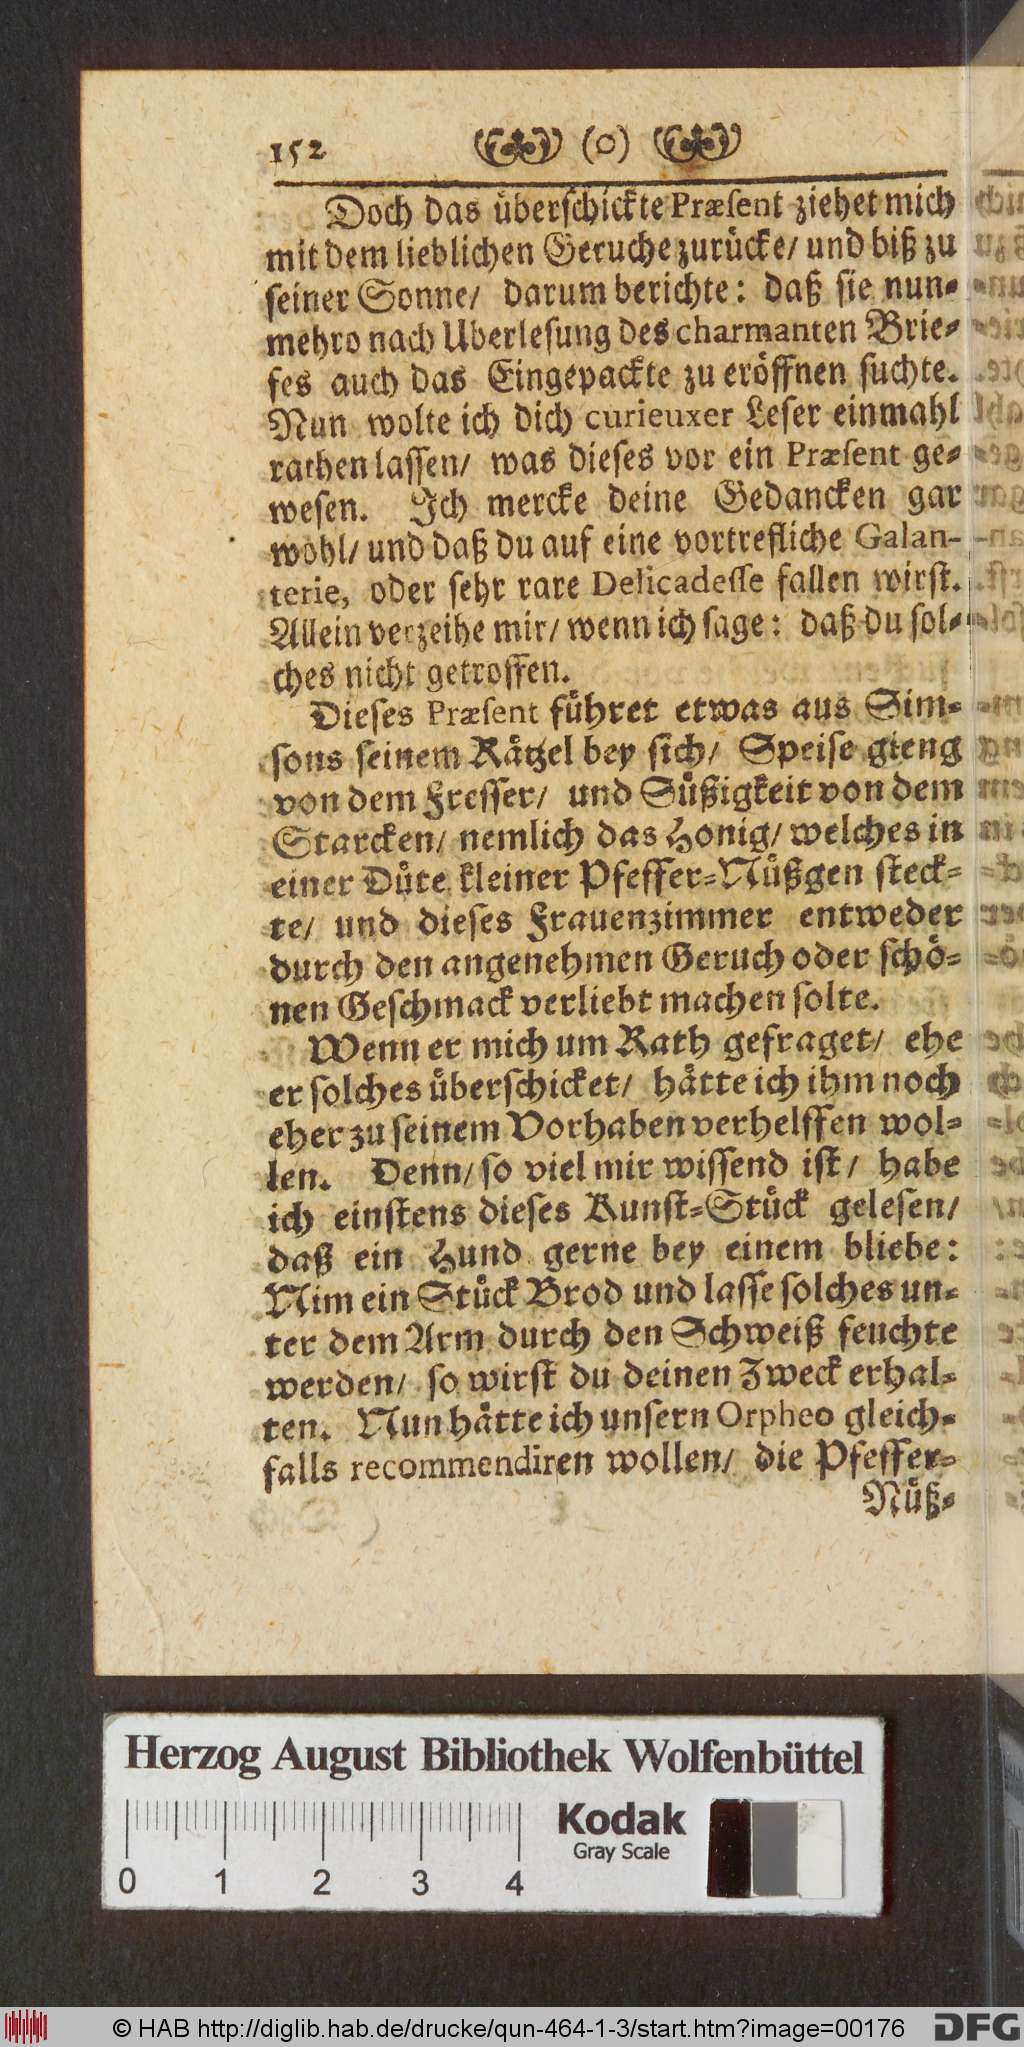 152 (o)
Doch das uͤberschickte Præsent ziehet mich
mit dem lieblichen Geruche zuruͤcke/ und biß zu
seiner Sonne/ darum berichte: daß sie nun-
mehro nach Uberlesung des charmanten Brie-
fes auch das Eingepackte zu eroͤffnen suchte.
Nun wolte ich dich curieuxer Leser einmahl
rathen lassen/ was dieses vor ein Præsent ge-
wesen. Ich mercke deine Gedancken gar
wohl/ und daß du auf eine vortrefliche Galan-
terie, oder sehr rare Delicadesse fallen wirst.
Allein verzeihe mir/ wenn ich sage: daß du sol-
ches nicht getroffen.
Dieses Præsent fuͤhret etwas aus Sim-
sons seinem Raͤtzel bey sich/ Speise gieng
von dem Fresser/ und Suͤßigkeit von dem
Starcken/ nemlich das Honig/ welches in
einer Duͤte kleiner Pfeffer-Nuͤßgen steck-
te/ und dieses Frauenzimmer entweder
durch den angenehmen Geruch oder schoͤ-
nen Geschmack verliebt machen solte.
Wenn er mich um Rath gefraget/ ehe
er solches uͤberschicket/ haͤtte ich ihm noch
eher zu seinem Vorhaben verhelffen wol-
len. Denn/ so viel mir wissend ist/ habe
ich einstens dieses Kunst-Stuͤck gelesen/
daß ein Hund gerne bey einem bliebe:
Nim ein Stuͤck Brod und lasse solches un-
ter dem Arm durch den Schweiß feuchte
werden/ so wirst du deinen Zweck erhal-
ten. Nun haͤtte ich unsern Orpheo gleich-
falls recommendiren wollen/ die Pfeffer-
Nuͤß-
Herzog August Bibliothek Wolfenbüttel
Kodak
Gray Scale
0 1 2 3 4
© HAB http://diglib.hab.de/drucke/qun-464-1-3/start.htm?image=00176 DFG